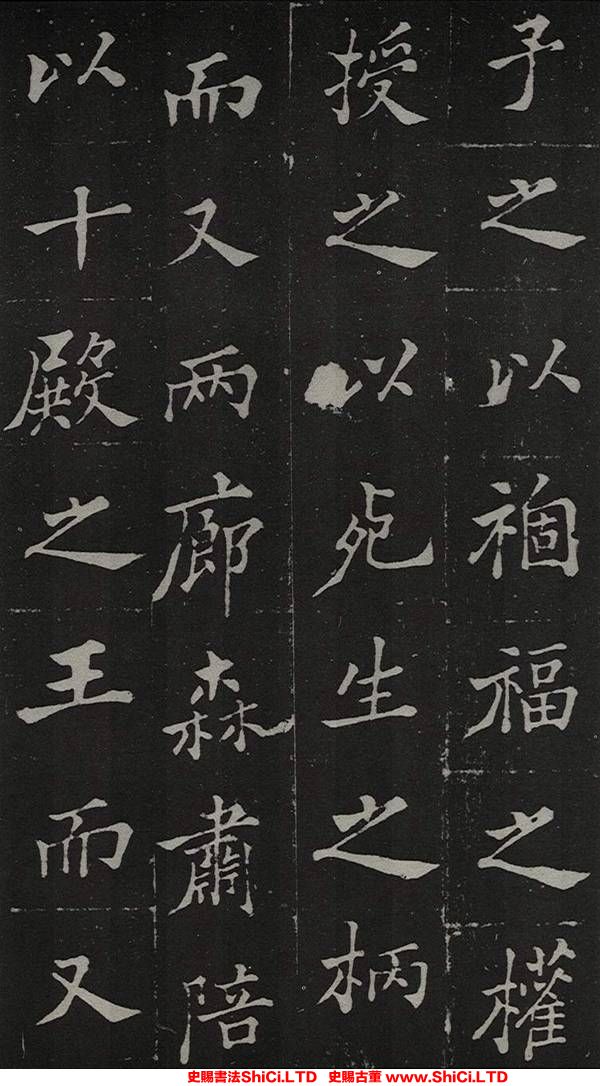 予之以禍福之權
授之以死生之柄
而又两廊森肅陪
以十殿之王而又
史賜書法ShiCi.LTD 史賜古董 www.ShiCi.LTD